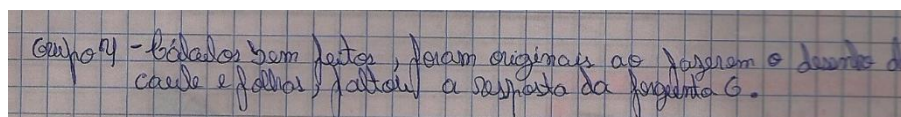 Grupo 4 - bólados bem feitos, foram originais ao fazerem o desenho d
caule e folhas, faltou a resposta da pergunta 6.